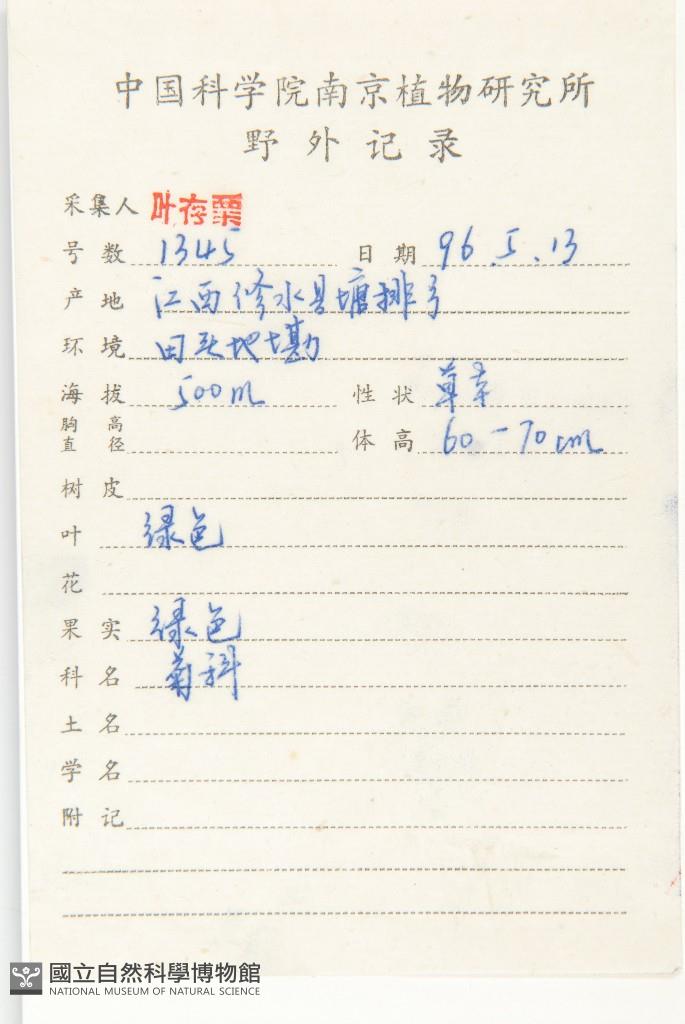 中国科学院南京植物研究所
野外记录
采集人 叶存粟
号数 1345 日期 96.5.13
产地 江西修水县塘排乡
环境 田头地墈
海拔 500m 性状 草本
胸高直径 体高 60-70cm
树皮
叶 绿色
花
果实 绿色
科名 菊科
土名
学名
附记
國立自然科學博物館
NATIONAL MUSEUM OF NATURAL SCIENCE